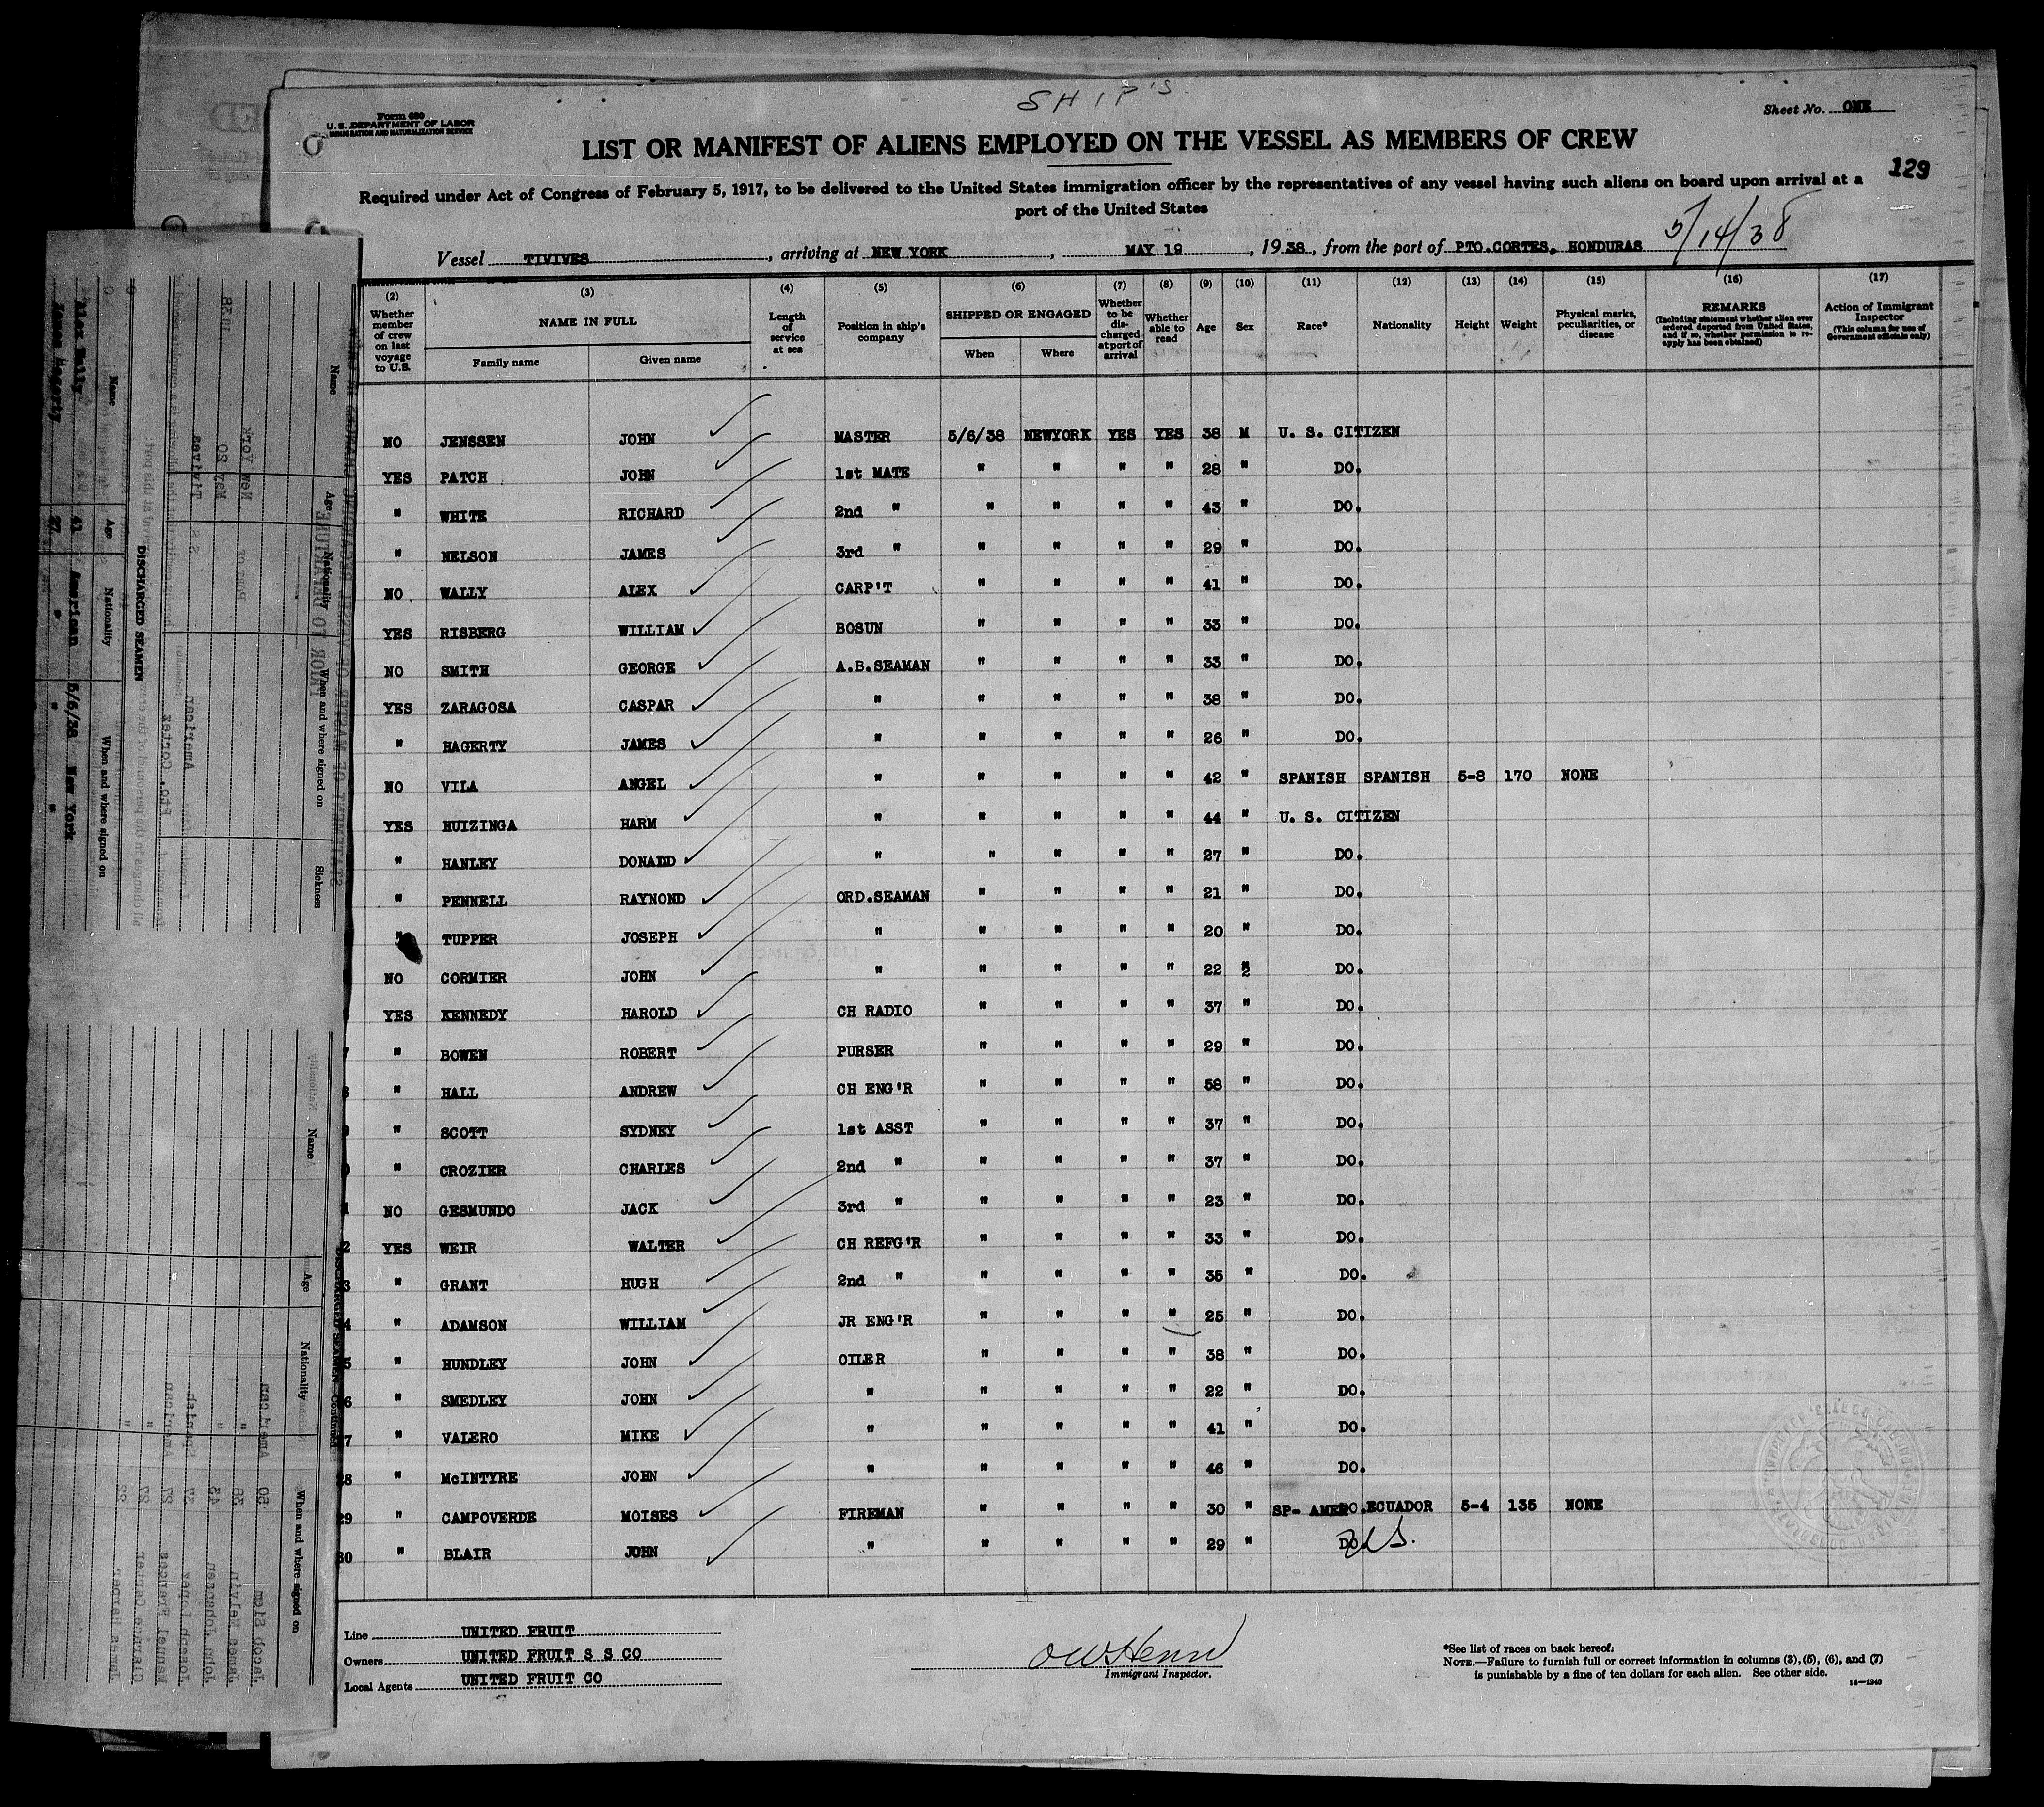 SHIP'S
Sheet No. ONE
Form 680
U.S. DEPARTMENT OF LABOR
IMMIGRATION AND NATURALIZATION SERVICE
LIST OR MANIFEST OF ALIENS EMPLOYED ON THE VESSEL AS MEMBERS OF CREW
129
Required under Act of Congress of February 5, 1917, to be delivered to the United States immigration officer by the representatives of any vessel having such aliens on board upon arrival at a
port of the United States
5/14/38
Vessel TIVIVES, arriving at NEW YORK, MAY 19, 1938, from the port of PTO.CORTES, HONDURAS
(2) (3) (4) (5) (6) (7) (8) (9) (10) (11) (12) (13) (14) (15) (16) (17)
Whether member of crew on last voyage to U.S.
NAME IN FULL
Family name
Given name
Length of service at sea
Position in ship's company
SHIPPED OR ENGAGED
When
Where
Whether to be discharged at port of arrival
Whether able to read
Age
Sex
Race*
Nationality
Height
Weight
Physical marks, peculiarities, or disease
REMARKS
(Including statement whether alien ever ordered deported from United States, and if so, whether permission to reapply has been obtained)
Action of Immigrant Inspector
(This column for use of Government officials only)
NO JENSSEN JOHN MASTER 5/6/38 NEWYORK YES YES 38 M U. S. CITIZEN
YES PATCH JOHN 1st MATE " " " " 28 " DO.
" WHITE RICHARD 2nd " " " " " 43 " DO.
" NELSON JAMES 3rd " " " " " 29 " DO.
NO WALLY ALEX CARP'T " " " " 41 " DO.
YES RISBERG WILLIAM BOSUN " " " " 33 " DO.
NO SMITH GEORGE A.B.SEAMAN " " " " 33 " DO.
YES ZARAGOSA CASPAR " " " " " 38 " DO.
" HAGERTY JAMES " " " " " 26 " DO.
NO VILA ANGEL " " " " " 42 " SPANISH SPANISH 5-8 170 NONE
YES HUIZINGA HARM " " " " " 44 " U. S. CITIZEN
" HANLEY DONADD " " " " " 27 " DO.
" PENNELL RAYNOND ORD.SEAMAN " " " " 21 " DO.
" TUPPER JOSEPH " " " " " 20 " DO.
NO CORMIER JOHN " " " " " 22 " DO.
YES KENNEDY HAROLD CH RADIO " " " " 37 " DO.
7 " BOWEN ROBERT PURSER " " " " 29 " DO.
8 " HALL ANDREW CH ENG'R " " " " 58 " DO.
9 " SCOTT SYDNEY 1st ASST " " " " 37 " DO.
0 " CROZIER CHARLES 2nd " " " " " 37 " DO.
1 NO GESMUNDO JACK 3rd " " " " " 23 " DO.
2 YES WEIR WALTER CH REFG'R " " " " 33 " DO.
3 " GRANT HUGH 2nd " " " " " 35 " DO.
4 " ADAMSON WILLIAM JR ENG'R " " " " 25 " DO.
5 " HUNDLEY JOHN OILER " " " " 38 " DO.
6 " SMEDLEY JOHN " " " " " 22 " DO.
7 " VALERO MIKE " " " " " 41 " DO.
28 " McINTYRE JOHN " " " " " 46 " DO.
29 " CAMPOVERDE MOISES FIREMAN " " " " 30 " SP- AMER ECUADOR 5-4 135 NONE
30 " BLAIR JOHN " " " " " 29 " DO. U.S.
Line UNITED FRUIT
Owners UNITED FRUIT S S CO
Local Agents UNITED FRUIT CO
Immigrant Inspector.
*See list of races on back hereof.
NOTE.—Failure to furnish full or correct information in columns (3), (5), (6), and (7)
is punishable by a fine of ten dollars for each alien. See other side.
14—1240
DISCHARGED SEAMEN
Name Age Nationality When and where signed on
Alex Wally 41 American 5/6/38 New York
James Hagerty 27 " " "
Name Age Nationality When and where signed on Sickness
DISCHARGED SEAMEN—Continued
Name Age Nationality When and where signed on